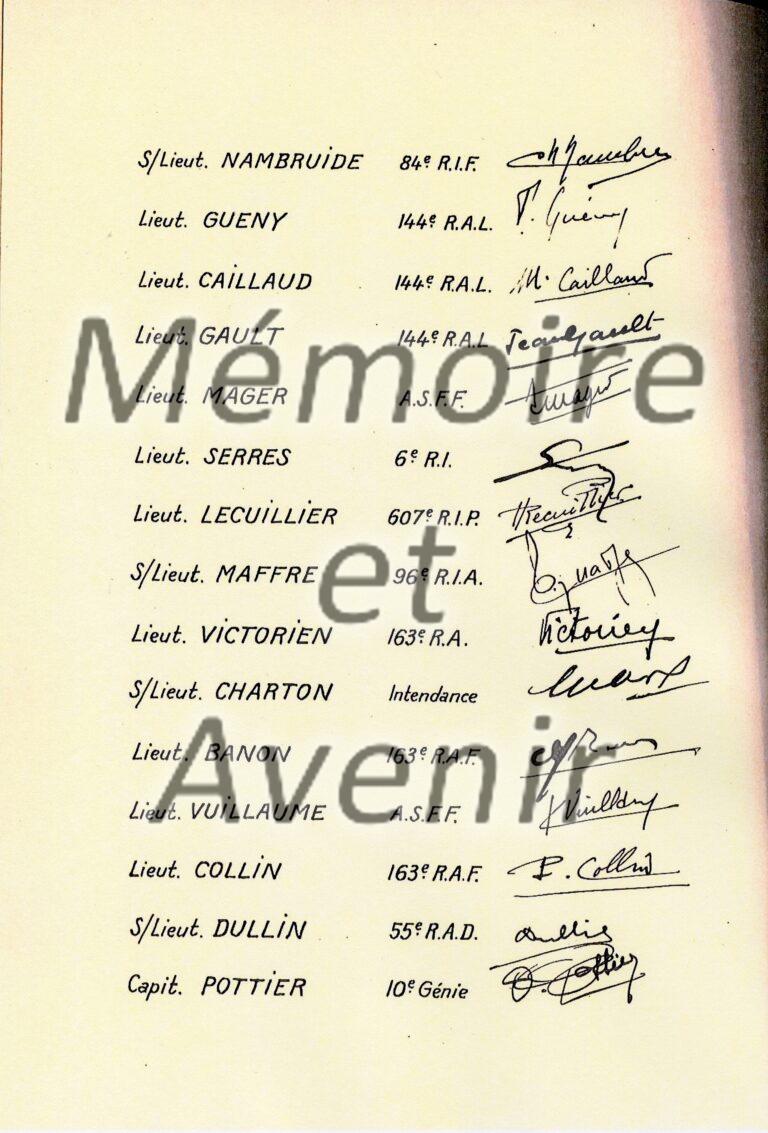 S/Lieut. NAMBRUIDE 84e R.I.F.
Lieut. GUENY 144e R.A.L. P. Guény
Lieut. CAILLAUD 144e R.A.L. M. Caillaud
Lieut. GAULT 144e R.A.L Jean Gault
Mémoire
Lieut. MAGER A.S.F.F.
Lieut. SERRES 6e R.I.
Lieut. LECUILLIER 607e R.I.P.
et
S/Lieut. MAFFRE 96e R.I.A.
Lieut. VICTORIEN 163e R.A. Victorien
S/Lieut. CHARTON Intendance
Lieut. BANON 163e R.A.F.
Avenir
Lieut. VUILLAUME A.S.F.F.
Lieut. COLLIN 163e R.A.F. P. Collin
S/Lieut. DULLIN 55e R.A.D. Dullin
Capit. POTTIER 10e Génie